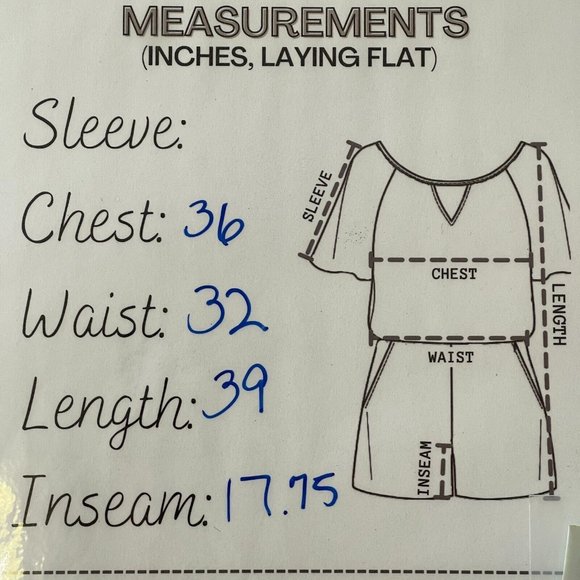 MEASUREMENTS
(INCHES, LAYING FLAT)
Sleeve:
Chest: 36
Waist: 32
Length: 39
Inseam: 17.75
SLEEVE
CHEST
LENGTH
WAIST
INSEAM